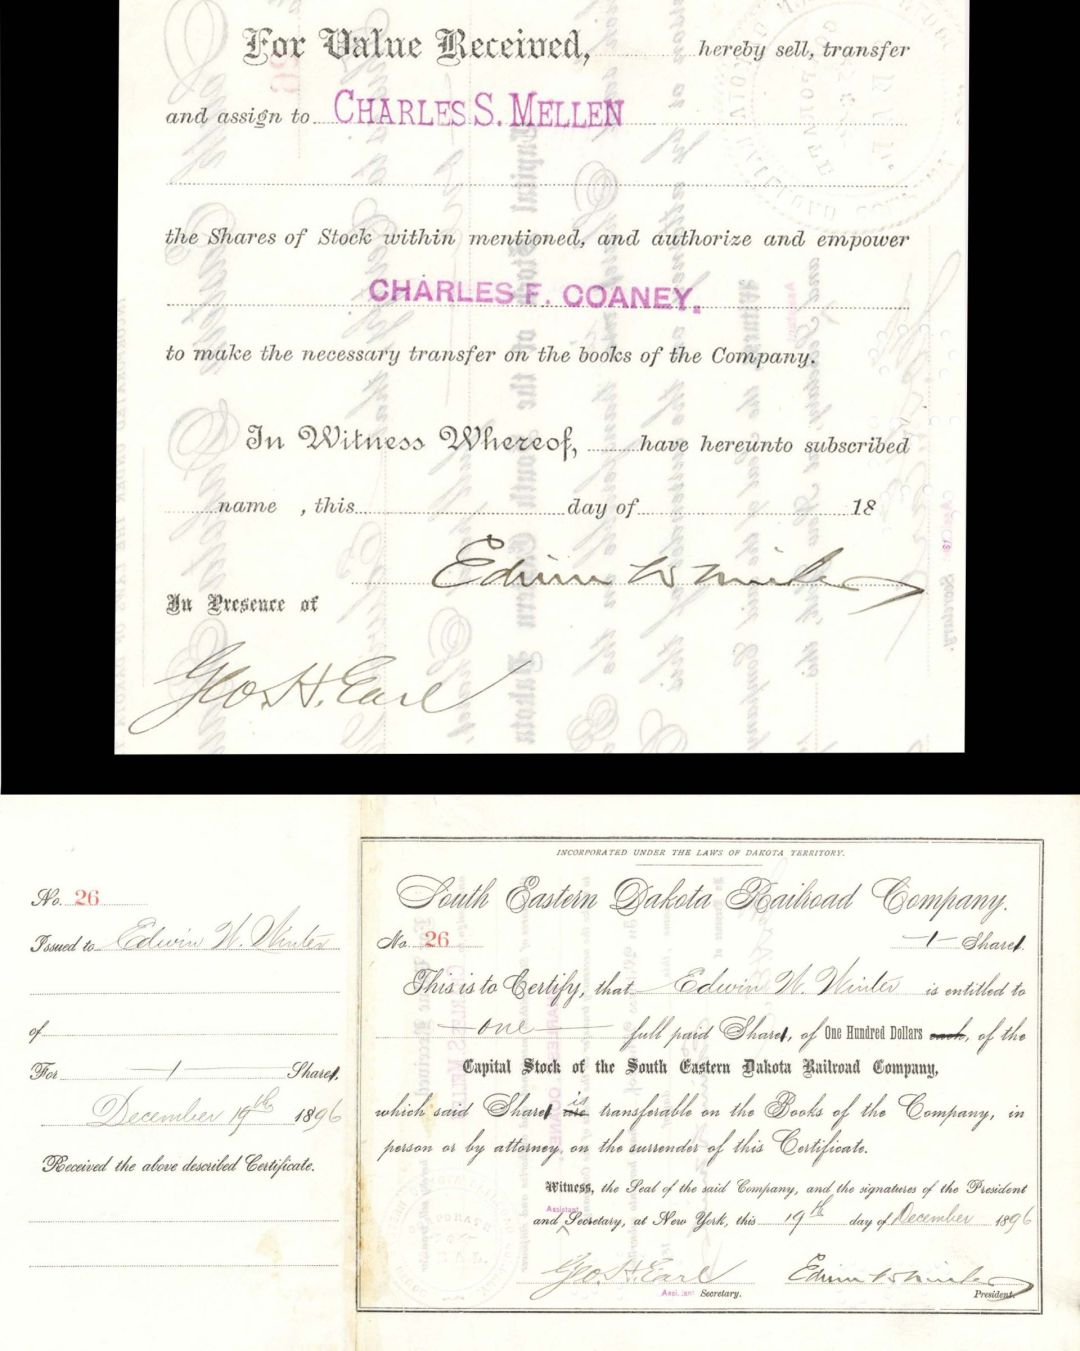 For Value Received, hereby sell, transfer
and assign to CHARLES S. MELLEN
the Shares of Stock within mentioned, and authorize and empower
CHARLES F. COANEY.
to make the necessary transfer on the books of the Company.
In Witness Whereof, have hereunto subscribed
name , this day of 18
Edwin W Winter
In Presence of
Geo. H. Earl
No. 26
Issued to Edwin W. Winter
of
For 1 Share
December 19th 1896
Received the above described Certificate.
INCORPORATED UNDER THE LAWS OF DAKOTA TERRITORY.
South Eastern Dakota Railroad Company.
No. 26 1 Share
This is to Certify, that Edwin W. Winter is entitled to
one full paid Share, of One Hundred Dollars each, of the
Capital Stock of the South Eastern Dakota Railroad Company,
which said Share are is transferable on the Books of the Company, in
person or by attorney, on the surrender of this Certificate.
Witness, the Seal of the said Company, and the signatures of the President
and Assistant Secretary, at New York, this 19th day of December 1896
Geo. H. Earl Edwin W Winter
Assistant Secretary. President.